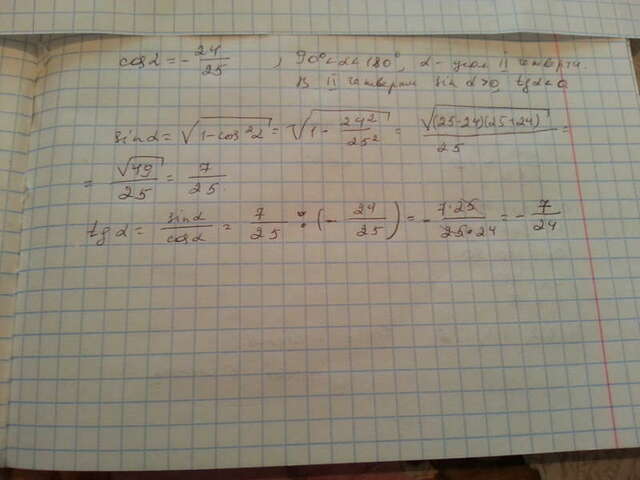 cos α = - 24/25 , 90° < α < 180°, α - угол II четверти.
В II четверти sin α > 0, tg α < 0
sin α = √(1 - cos²α) = √(1 - 24²/25²) = √((25-24)(25+24))/25 =
= √49/25 = 7/25
tg α = sin α/cos α = 7/25 : (- 24/25) = - 7·25/25·24 = - 7/24